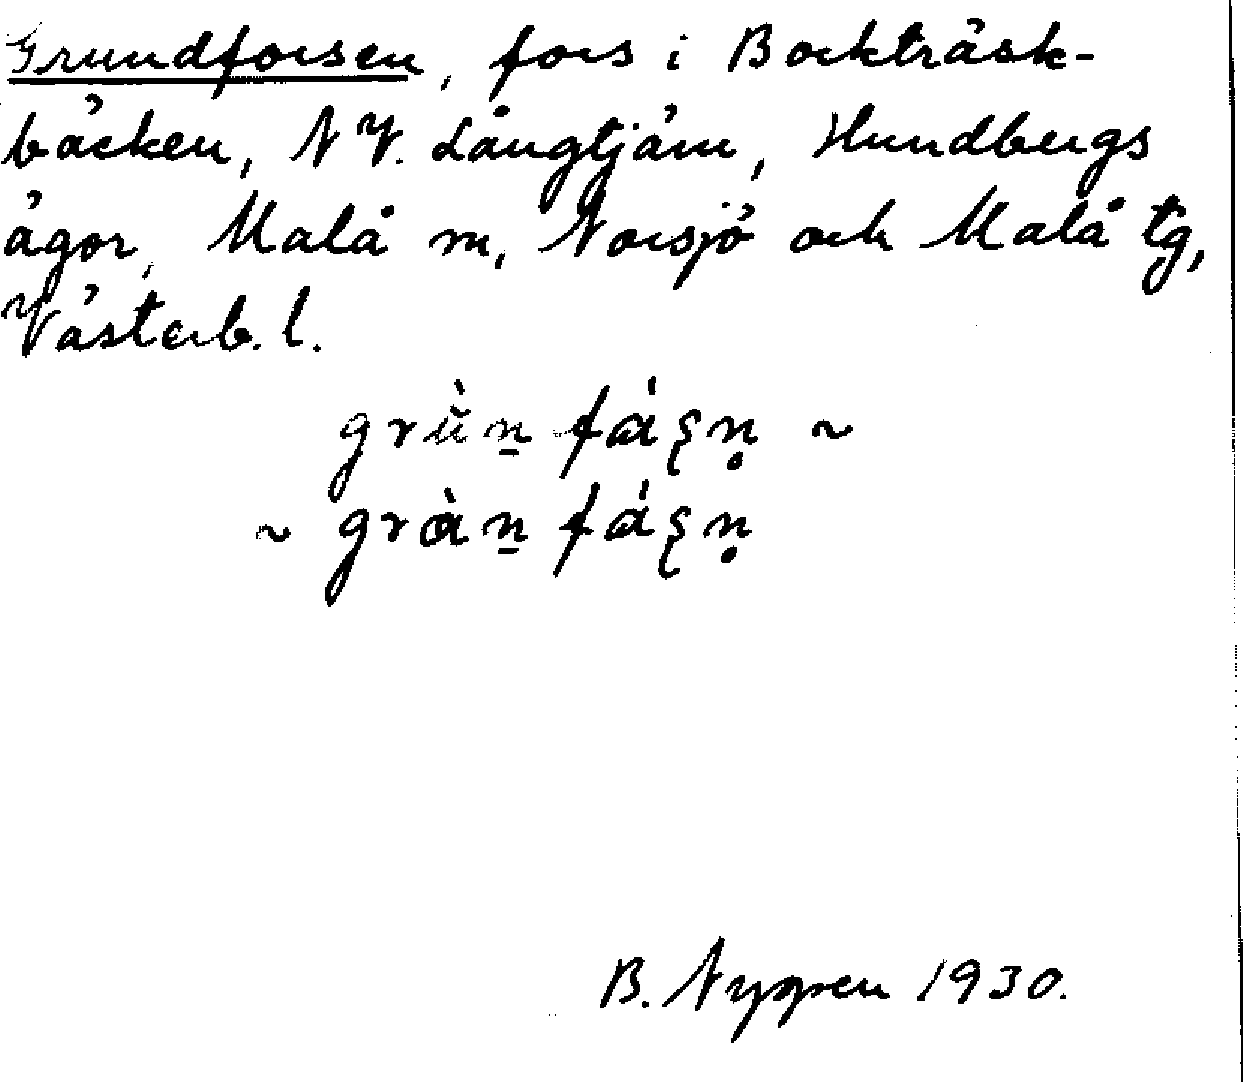 Grundforsen, fors i Bockträsk-
bäcken, NV. Långtjärn, Hundbergs
ägor, Malå sn, Norsjö och Malå tg,
Västerb. l.
grùn̲ fáʂṇ ~
~ gràn̲ fáʂṇ
B. Nygren 1930.